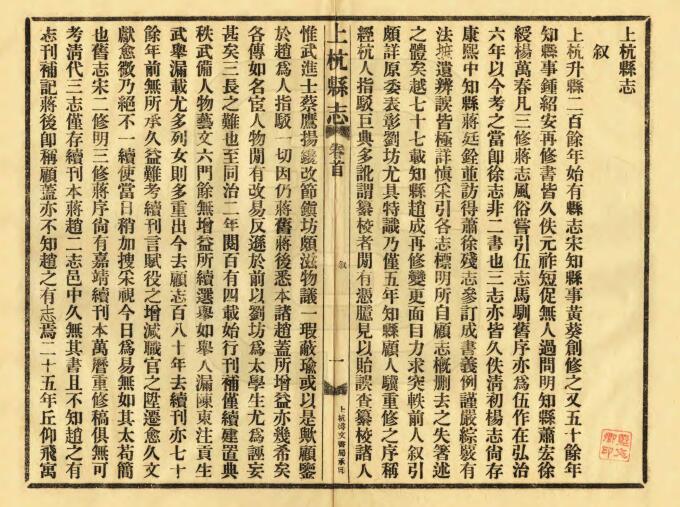 上杭縣志
叙
上杭升縣二百餘年始有縣志宋知縣事黃葵創修之又五十餘年
知縣事鍾紹安再修書皆久佚元祚短促無人過問明知縣蕭宏徐
綬楊萬春凡三修蔣志風俗嘗引伍志馬馴舊序亦爲伍作在弘治
六年以今考之當卽徐志非二書也三志亦皆久佚清初楊志尙存
康熙中知縣蔣廷銓並訪得蕭徐殘志參訂成書義例謹嚴綜覈有
法摭遺辨誤皆極詳愼采引各志標明所自顧志槪刪去之失箸述
之體矣越七十七載知縣趙成再修變更面目力求突軼前人叙引
頗詳原委表彰劉坊尤具特識乃僅五年知縣顧人驥重修之序稱
經杭人指駁巨典多訛謂纂校者閒有憑臆見以貽誤查纂校諸人
上杭縣志
卷首
叙
一
上杭涛文書局承印
惟武進士蔡鷹揚鐫改節鎭坊頗滋物議一瑕蔽瑜或以是歟顧鑒
於趙爲人指駁一切因仍蔣舊蔣後悉本諸趙蓋所增益亦幾希矣
各傳如名宦人物閒有改易反遜於前以劉坊爲太學生尤爲誣妄
甚矣三長之難也至同治二年閱百有四載始行刊補僅續建置典
秩武備人物藝文六門餘無增益所續選舉如舉人漏陳東注貢生
武舉漏載尤多列女則多重出今去顧志百八十年去續刊亦七十
餘年前無所承久益難考續刊言賦役之增減職官之陞遷愈久文
獻愈微乃絕不一續使當日稍加搜采視今日爲易無如其太苟簡
也舊志宋二修明三修蔣序尙有嘉靖續刊本萬曆重修稿俱無可
考清代三志僅存續刊本蔣趙二志邑中久無其書且不知趙之有
志刊補記蔣後卽稱顧蓋亦不知趙之有志焉二十五年丘仰飛寓